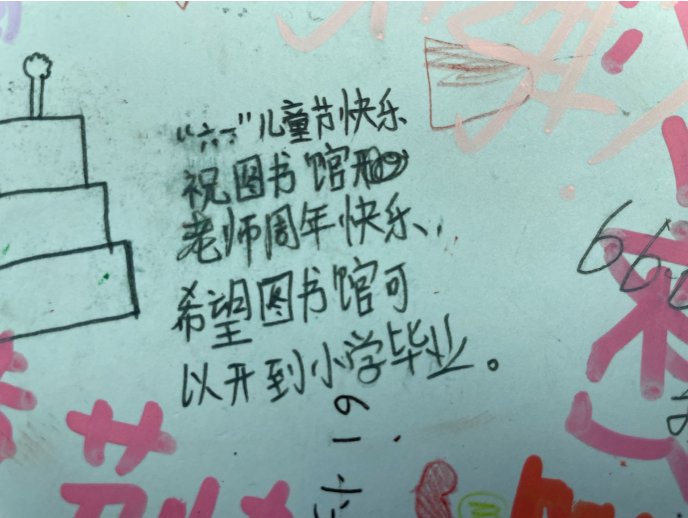 “六一”儿童节快乐
祝图书馆
老师周年快乐,
希望图书馆可
以开到小学毕业。
61
666